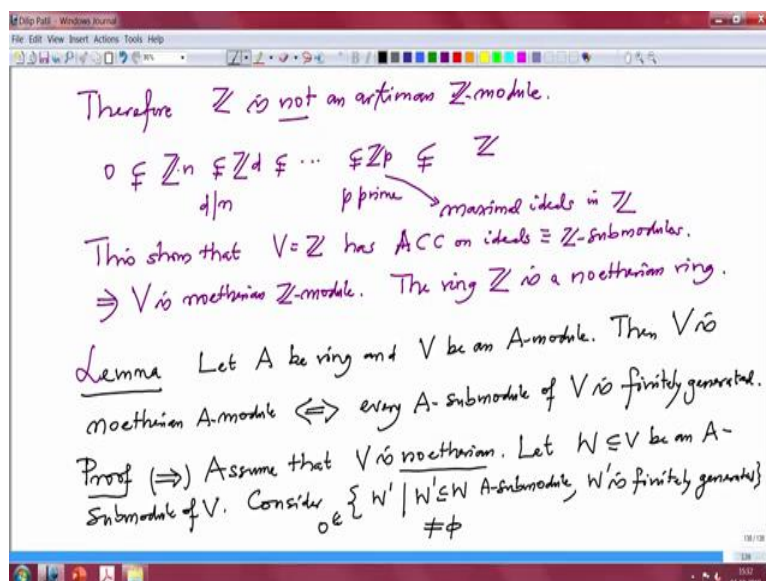 Dilip Patil - Windows Journal
File Edit View Insert Actions Tools Help
Therefore ℤ is not an artinian ℤ-module.
0 ⊊ ℤ·n ⊊ ℤd ⊊ ··· ⊊ ℤp ⊊ ℤ
d|n p prime maximal ideals in ℤ
This show that V=ℤ has ACC on ideals ≡ ℤ-submodules.
⇒ V is noetherian ℤ-module. The ring ℤ is a noetherian ring.
Lemma Let A be ring and V be an A-module. Then V is
noetherian A-module ⇔ every A-submodule of V is finitely generated.
Proof (⇒) Assume that V is noetherian. Let W ⊆ V be an A-
submodule of V. Consider 0 ∈ { W' | W' ⊆ W A-submodule, W' is finitely generated}
≠ ϕ
138/138
138
15:32